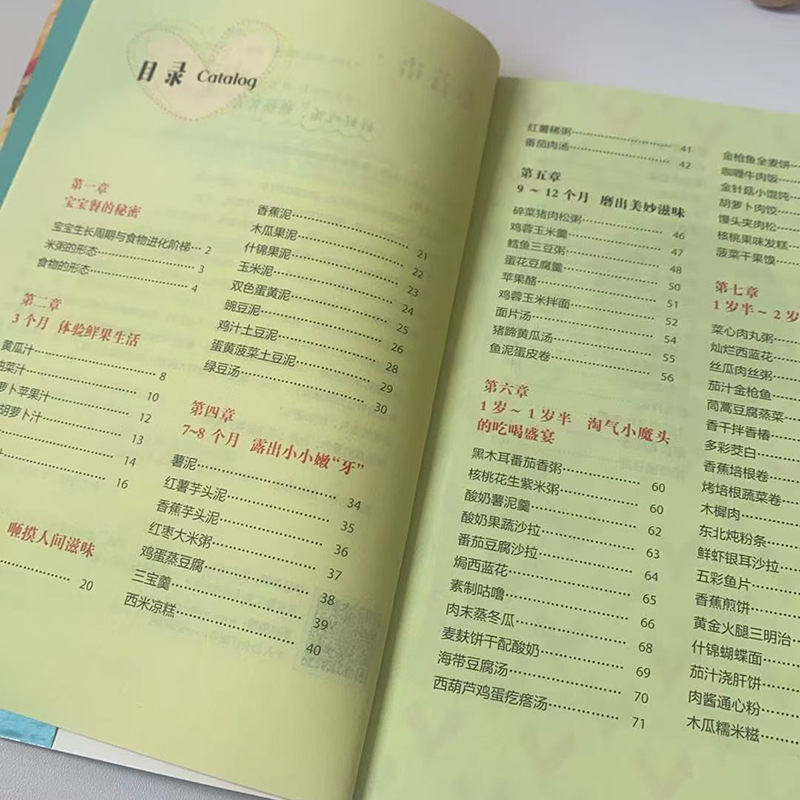 目录 Catalog
第一章
宝宝餐的秘密
宝宝生长周期与食物进化阶梯 2
米粥的形态 3
食物的形态 4
第二章
3个月 体验鲜果生活
黄瓜汁 8
菜汁 10
卜苹果汁 12
胡萝卜汁 13
汁 14
16
咂摸人间滋味
20
香蕉泥 21
木瓜果泥 22
什锦果泥 23
玉米泥 24
双色蛋黄泥 25
豌豆泥 26
鸡汁土豆泥 28
蛋黄菠菜土豆泥 29
绿豆汤 30
第四章
7~8个月 露出小小嫩“牙”
薯泥 34
红薯芋头泥 35
香蕉芋头泥 36
红枣大米粥 37
鸡蛋蒸豆腐 38
三宝羹 39
西米凉糕 40
红薯稀粥 41
番茄肉汤 42
第五章
9~12个月 磨出美妙滋味
碎菜猪肉松粥 46
鸡蓉玉米羹 47
鳕鱼三豆粥 48
蛋花豆腐羹 50
苹果酪 51
鸡蓉玉米拌面 52
面片汤 54
猪蹄黄瓜汤 55
鱼泥蛋皮卷 56
第六章
1岁~1岁半 淘气小魔头
的吃喝盛宴
黑木耳番茄香粥 60
核桃花生紫米粥 60
酸奶薯泥羹 62
酸奶果蔬沙拉 63
番茄豆腐沙拉 64
焗西蓝花 65
素制咕噜 66
肉末蒸冬瓜 68
麦麸饼干配酸奶 69
海带豆腐汤 70
西葫芦鸡蛋疙瘩汤 71
金枪鱼全麦饼
咖喱牛肉饭
金针菇小馄饨
胡萝卜肉饺
馒头夹肉松
核桃果味发糕
菠菜干果馍
第七章
1岁半~2岁
菜心肉丸粥
灿烂西蓝花
丝瓜肉丝粥
茄汁金枪鱼
茼蒿豆腐蒸菜
香干拌香椿
多彩茭白
香蕉培根卷
烤培根蔬菜卷
木樨肉
东北炖粉条
鲜虾银耳沙拉
五彩鱼片
香蕉煎饼
黄金火腿三明治
什锦蝴蝶面
茄汁浇肝饼
肉酱通心粉
木瓜糯米糍